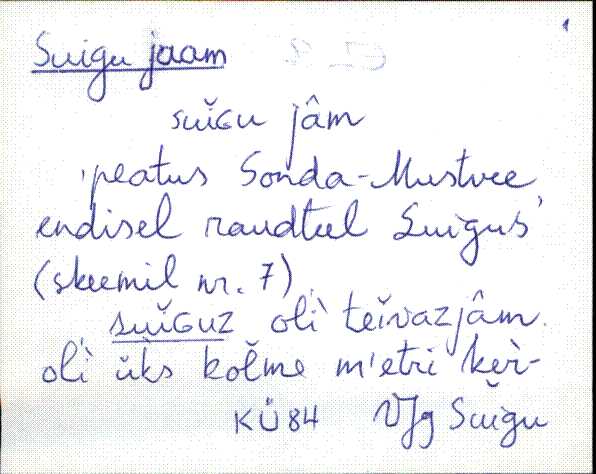 1
Suigu jaam
suĭGu jâm
'peatus Sonda-Mustvee
endisel raudteel Suigus'
(skeemil nr. 7)
suĭGuz olì̬ teĭvazjâm.
olì̬ ük̀s kolme m'etri ker̀-
KÜ84 VJg Suigu